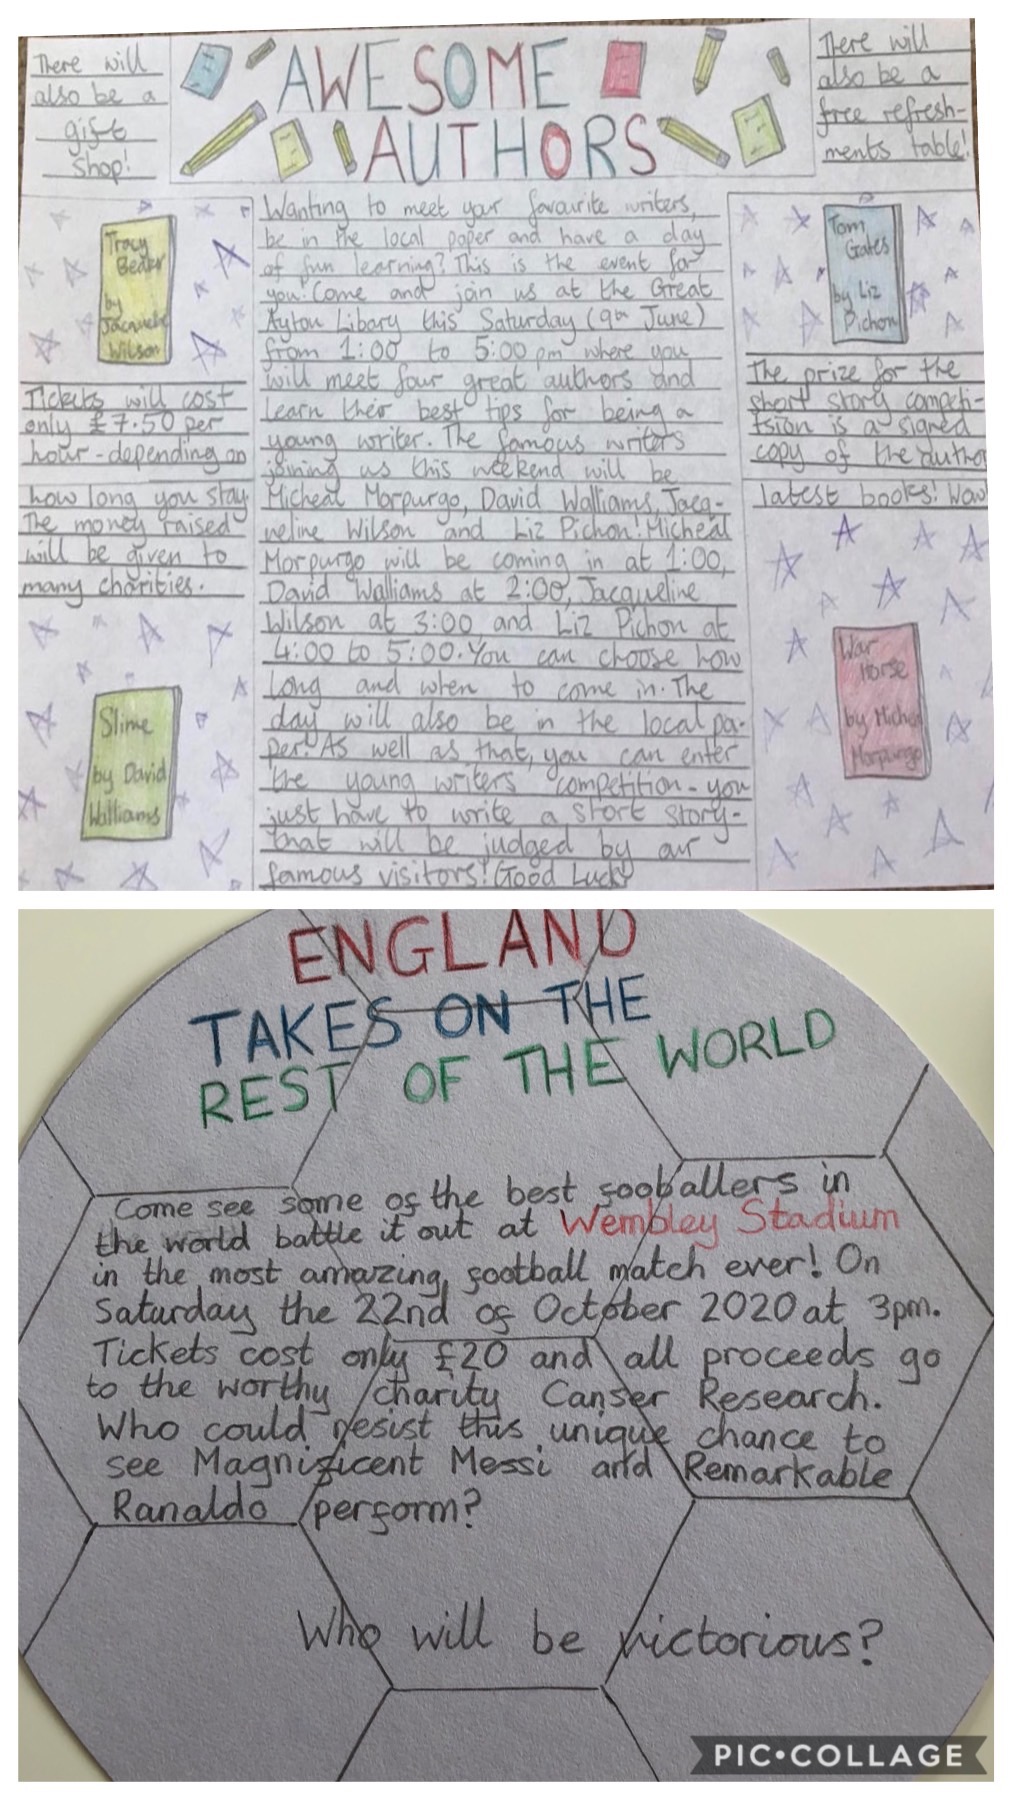 There will
also be a
gift
shop!
AWESOME
AUTHORS
There will
also be a
free refresh-
ments table!
Tracy
Beaker
by
Jacqueline
Wilson
Tickets will cost
only £7.50 per
hour - depending on
how long you stay.
The money raised
will be given to
many charities.
Slime
by David
Walliams
Wanting to meet your favourite writers,
be in the local paper and have a day
of fun learning? This is the event for
you. Come and join us at the Great
Ayton Libary this Saturday (9th June)
from 1:00 to 5:00 pm where you
will meet four great authors and
learn their best tips for being a
young writer. The famous writers
joining us this weekend will be
Micheal Morpurgo, David Walliams, Jacq-
ueline Wilson and Liz Pichon! Micheal
Morpurgo will be coming in at 1:00,
David Walliams at 2:00, Jacqueline
Wilson at 3:00 and Liz Pichon at
4:00 to 5:00. You can choose how
long and when to come in. The
day will also be in the local pa-
per! As well as that, you can enter
the young writers competition - you
just have to write a short story -
that will be judged by our
famous visitors! Good Luck!
Tom
Gates
by Liz
Pichon
The prize for the
short story competi-
tsion is a signed
copy of the author
latest books! Wow
War
Horse
by Miche
Morpurgo
ENGLAND
TAKES ON THE
REST OF THE WORLD
Come see some of the best fooballers in
the world battle it out at Wembley Stadium
in the most amazing football match ever! On
Saturday the 22nd of October 2020 at 3pm.
Tickets cost only £20 and all proceeds go
to the worthy charity Canser Research.
Who could resist this unique chance to
see Magnificent Messi and Remarkable
Ranaldo perform?
Who will be victorious?
PIC•COLLAGE